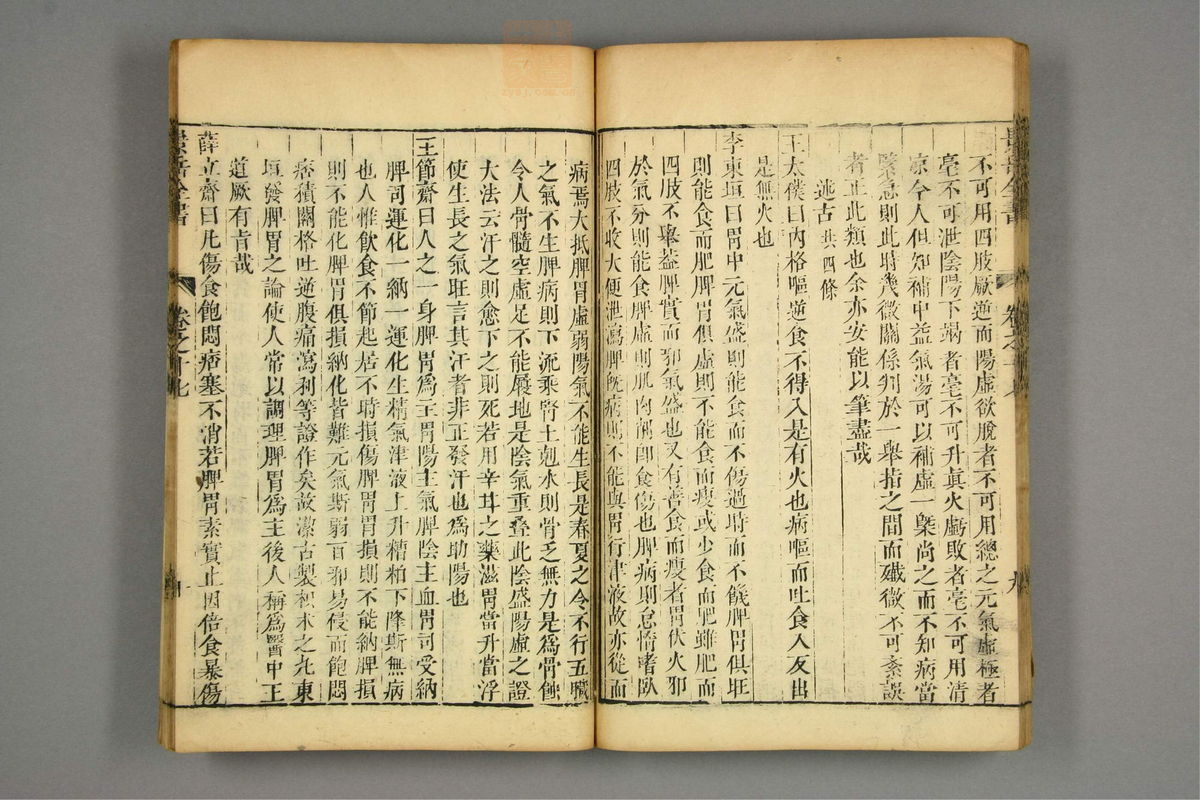 不可用四肢厥逆而陽虛欲脫者不可用總之元氣虛極者
毫不可泄陰陽下竭者毫不可升真火虧敗者毫不可用清
凉今人但知補中益氣湯可以補虛一槩尚之而不知病當
緊急則此時幾微關係判於一舉指之間而纖微不可紊誤
者正此類也余亦安能以筆盡哉
述古共四條
王太僕曰内格嘔逆食不得入是有火也病嘔而吐食入反出
是無火也
李東垣曰胃中元氣盛則能食而不傷過時而不饑脾胃俱旺
則能食而肥脾胃俱虛則不能食而瘦或少食而肥雖肥而
四肢不舉蓋脾實而邪氣盛也又有善食而瘦者胃伏火邪
於氣分則能食脾虛則肌肉削即食㑊也脾病則怠惰嗜臥
四肢不收大便泄瀉脾既病則不能與胃行津液故亦從而
病焉大抵脾胃虛弱陽氣不能生長是春夏之令不行五臟
之氣不生脾病則下流乘腎土剋水則骨乏無力是爲骨蝕
令人骨髓空虛足不能履地是陰氣重疊此陰盛陽虛之證
大法云汗之則愈下之則死若用辛甘之藥滋胃當升當浮
使生長之氣旺言其汗者非正發汗也爲助陽也
王節齋曰人之一身脾胃爲主胃陽主氣脾陰主血胃司受納
脾司運化一納一運化生精氣津液上升糟粕下降斯無病
也人惟飲食不節起居不時損傷脾胃胃損則不能納脾損
則不能化脾胃俱損納化皆難元氣斯弱百邪易侵而飽悶
痞積關格吐逆腹痛瀉利等證作矣故潔古製枳朮之丸東
垣發脾胃之論使人常以調理脾胃爲主後人稱爲醫中王
道厥有旨哉
薛立齋曰凡傷食飽悶痞塞不消若脾胃素實止因倍食暴傷
景岳全書
卷之十七
九
景岳全書
卷之十七